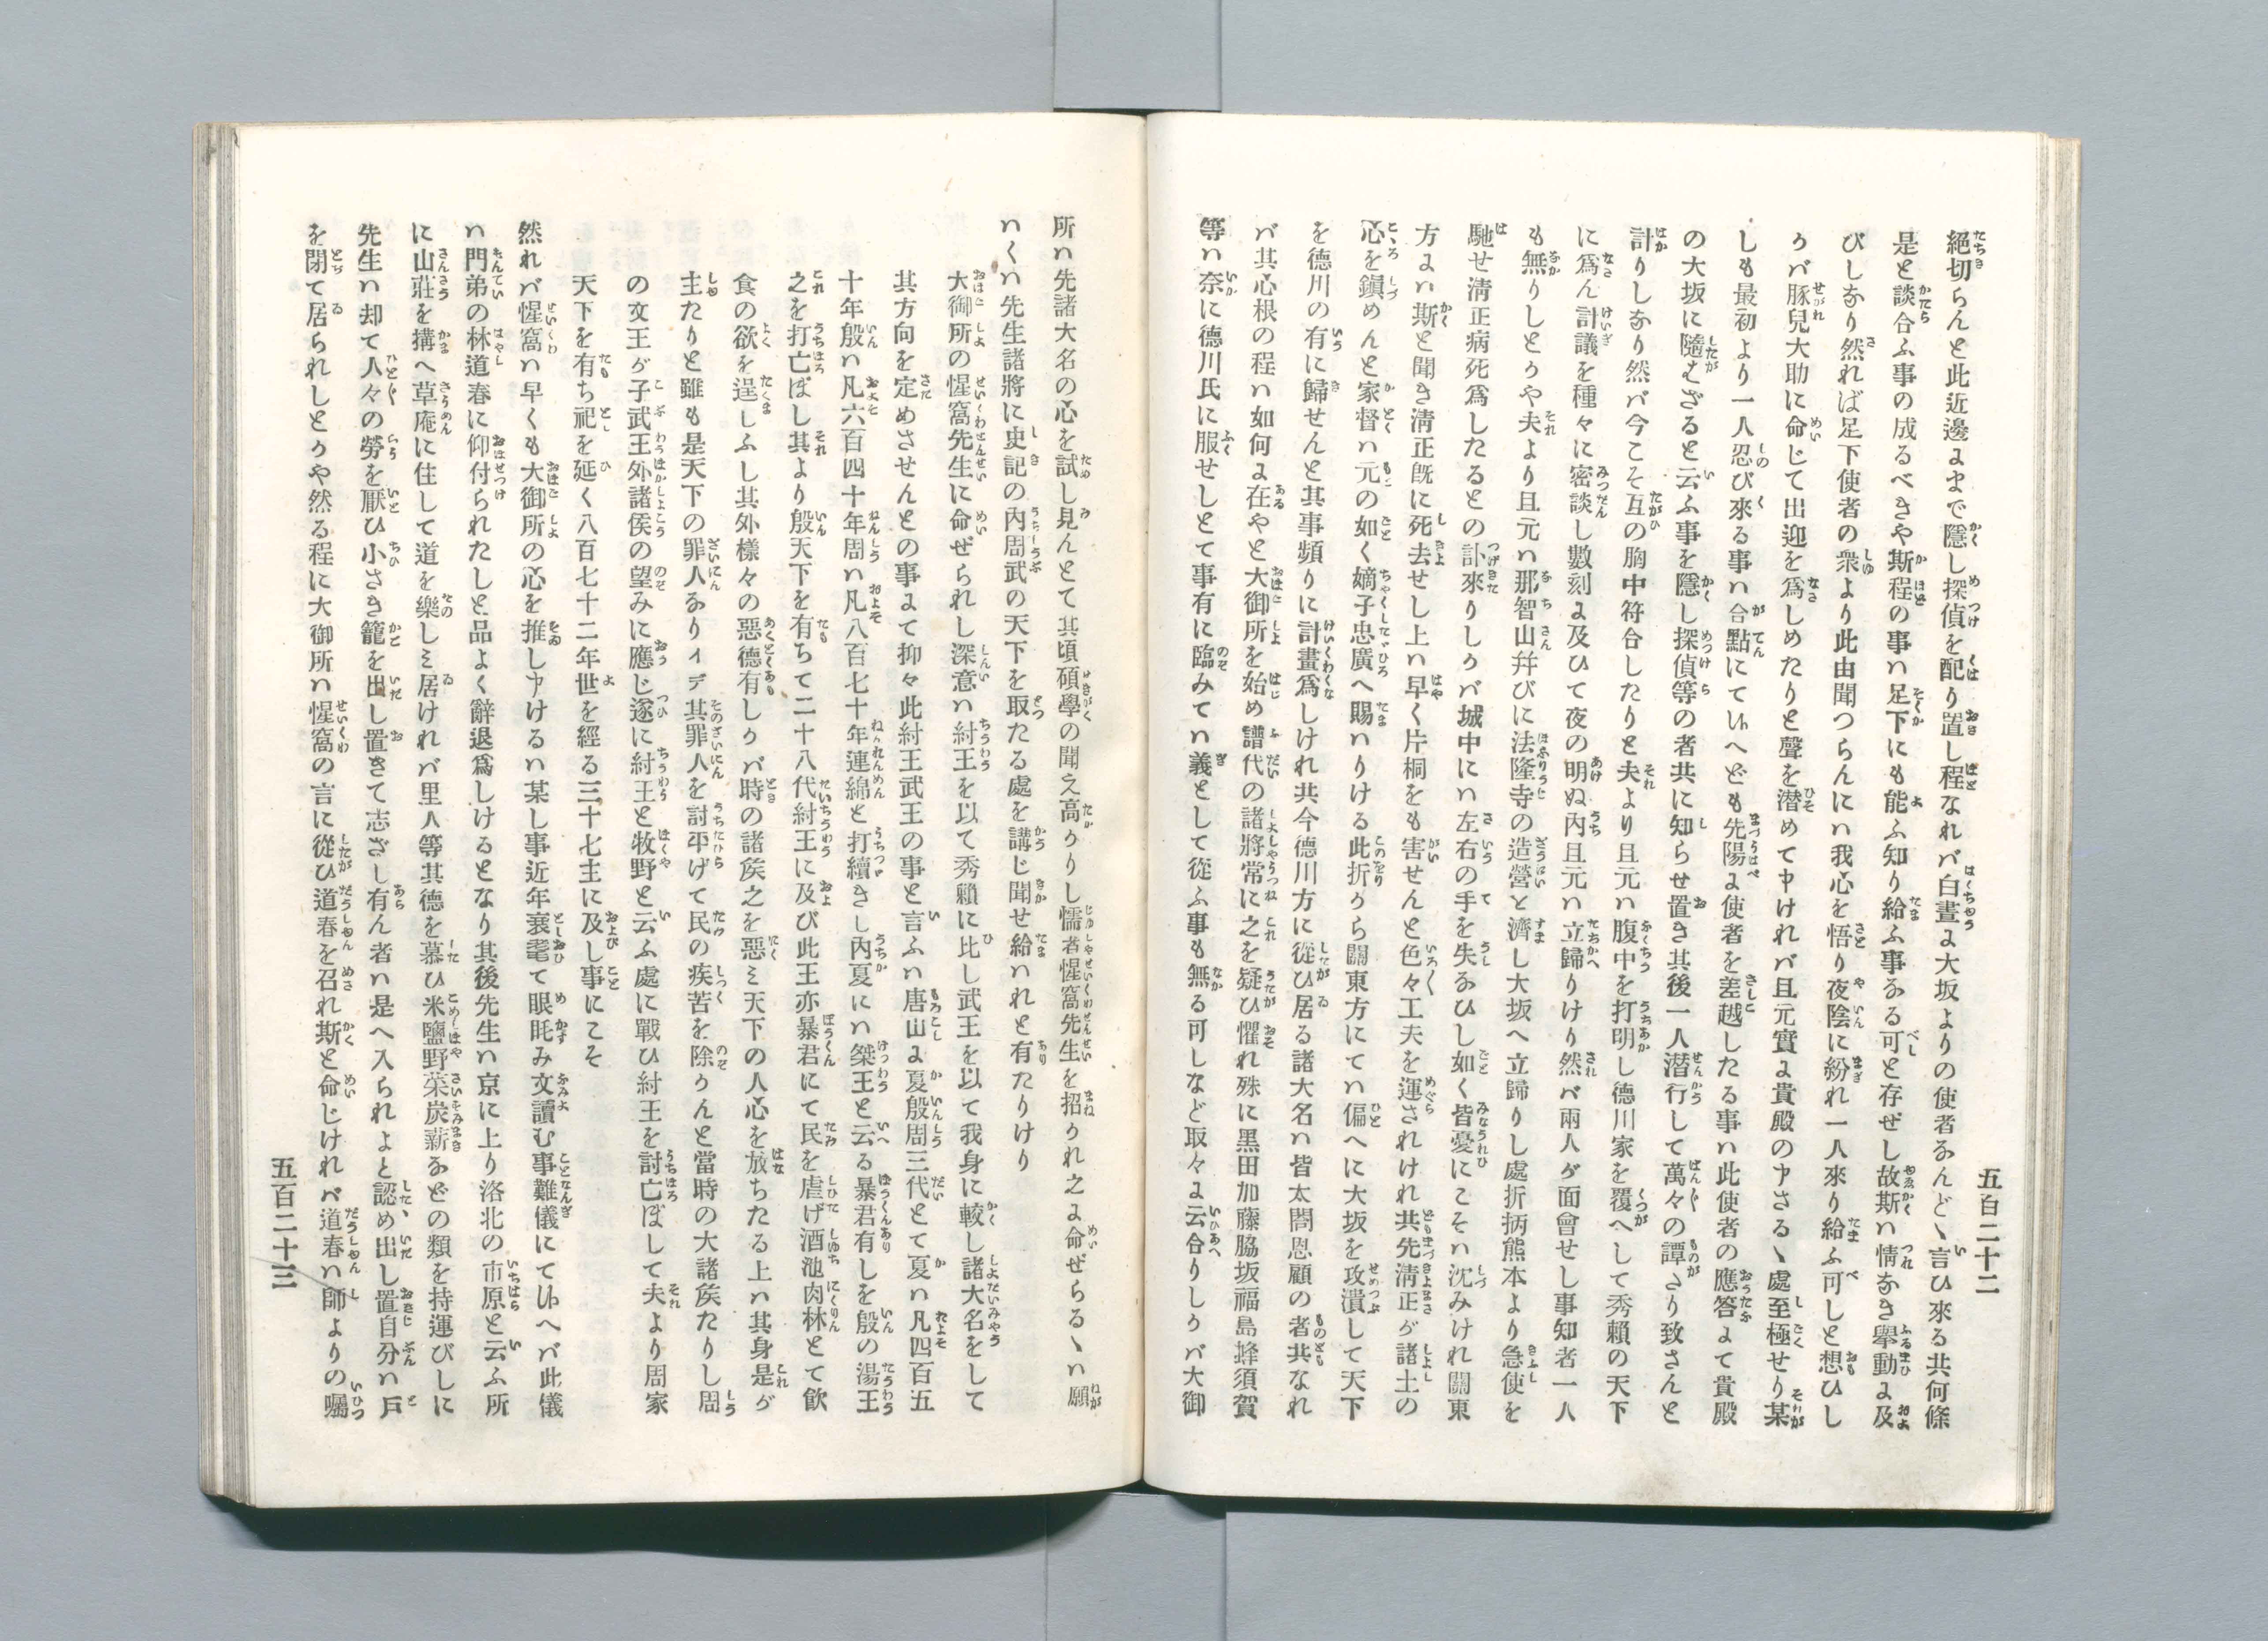 五百二十二
絕切らんと此近邊まで隱し探偵を配り置し程なれバ白晝に大坂よりの使者なんど丶言ひ來る共何條
是と談合ふ事の成るべきや斯程の事ハ足下にも能ふ知り給ふ事なる可と存ぜし故斯ハ情なき擧動に及
びしなり然れば足下使者の衆より此由聞つらんにハ我心を悟り夜陰に紛れ一人來り給ふ可しと想ひし
うバ豚兒大助に命じて出迎を爲しめたりと聲を潜めて申けれバ且元實に貴殿の申さる丶處至極せり某
しも最初より一人忍び來る事ハ合點にてハへども先陽に使者を差越したる事ハ此使者の應答にて貴殿
の大坂に隨むざると云ふ事を隱し探偵等の者共に知らせ置き其後一人潜行して萬々の譚さり致さんと
計りしなり然バ今こそ互の胸中符合したりと夫より且元ハ腹中を打明し德川家を覆へして秀賴の天下
に爲ん計議を種々に密談し數刻に及ひて夜の明ぬ內且元ハ立歸りけり然バ兩人が面會せし事知者一人
も無りしとうや夫より且元ハ那智山幷びに法隆寺の造營と濟し大坂へ立歸りし處折柄熊本より急使を
馳せ淸正病死爲したるとの訃來りしうバ城中にハ左右の手を失なひし如く皆憂にこそハ沈みけれ關東
方にハ斯と聞き淸正旣に死去せし上ハ早く片桐をも害せんと色々工夫を運されけれ共先淸正が諸士の
心を鎭めんと家督ハ元の如く嫡子忠廣へ賜ハりける此折うら關東方にてハ偏へに大坂を攻潰して天下
を德川の有に歸せんと其事頻りに計畫爲しけれ共今德川方に從ひ居る諸大名ハ皆太閤恩顧の者共なれ
バ其心根の程ハ如何に在やと大御所を始め譜代の諸將常に之を疑ひ懼れ殊に黑田加藤脇坂福島蜂須賀
等ハ奈に德川氏に服せしとて事有に臨みてハ義として從ふ事も無る可しなど取々に云合りしうバ大御
所ハ先諸大名の心を試し見んとて其頃碩學の聞え高うりし儒者惺窩先生を招うれ之に命ぜらる丶ハ願
ハくハ先生諸將に史記の內周武の天下を取たる處を講じ聞せ給ハれと有たりけり
大御所の惺窩先生に命ぜられし深意ハ紂王を以て秀賴に比し武王を以て我身に較し諸大名をして
其方向を定めさせんとの事にて抑々此紂王武王の事と言ふハ唐山に夏殷周三代とて夏ハ凡四百五
十年殷ハ凡六百四十年周ハ凡八百七十年連綿と打續きし內夏にハ桀王と云る暴君有しを殷の湯王
之を打亡ぼし其より殷天下を有ちて二十八代紂王に及び此王亦暴君にて民を虐げ酒池肉林とて飮
食の欲を逞しふし其外樣々の惡德有しうバ時の諸矦之を惡ミ天下の人心を放ちたる上ハ其身是が
主たりと雖も是天下の罪人なりイデ其罪人を討平げて民の疾苦を除うんと當時の大諸矦たりし周
の文王が子武王外諸侯の望みに應じ遂に紂王と牧野と云ふ處に戰ひ紂王を討亡ぼして夫より周家
天下を有ち祀を延く八百七十二年世を經る三十七主に及し事にこそ
然れバ惺窩ハ早くも大御所の心を推し申けるハ某し事近年衰耄て眼眊み文讀む事難儀にてハへバ此儀
ハ門弟の林道春に仰付られたしと品よく辭退爲しけるとなり其後先生ハ京に上り洛北の市原と云ふ所
に山莊を搆へ草庵に住して道を樂しミ居けれバ里人等其德を慕ひ米鹽野菜炭薪などの類を持運びしに
先生ハ却て人々の勞を厭ひ小さき籠を出し置きて志ざし有ん者ハ是へ入られよと認め出し置自分ハ戶
を閉て居られしとうや然る程に大御所ハ惺窩の言に從ひ道春を召れ斯と命じけれバ道春ハ師よりの囑
五百二十三